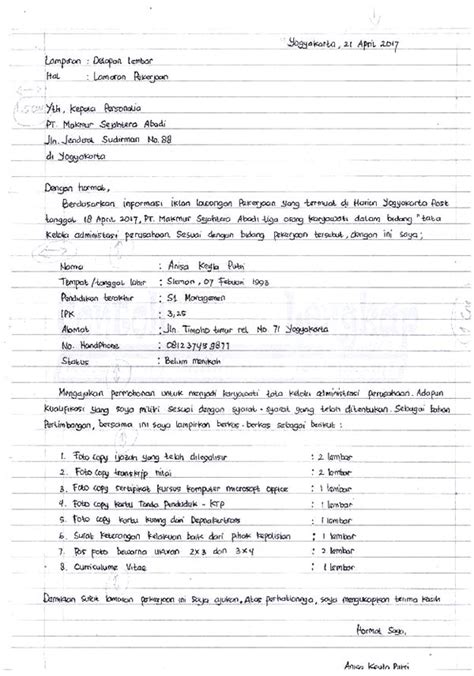 Yogyakarta, 21 April 2017
Lampiran : Delapan lembar
Hal : Lamaran Pekerjaan
Yth, Kepala Personalia
PT. Makmur Sejahtera Abadi
Jln. Jenderal Sudirman No. 88
di Yogyakarta
Dengan hormat,
Berdasarkan informasi iklan lowongan Pekerjaan yang termuat di Harian Yogyakarta Post
tanggal 18 April 2017, PT. Makmur Sejahtera Abadi tiga orang karyawati dalam bidang "tata
kelola administrasi perusahaan. Sesuai dengan bidang pekerjaan tersebut, dengan ini saya;
Nama : Anisa Keyla Putri
Tempat/tanggal lahir : Sleman, 07 Februari 1993
Pendidikan terakhir : S1 Managemen
IPK : 3,25
Alamat : Jln. Timoho timur rel No. 71 Yogyakarta
No. Handphone : 081237459877
Status : Belum menikah
Mengajukan permohonan untuk menjadi karyawati tata kelola administrasi perusahaan. Adapun
kualifikasi yang saya miliki sesuai dengan syarat-syarat yang telah ditentukan. Sebagai bahan
Pertimbangan, bersama ini saya lampirkan berkas-berkas sebagai berikut :
1. Foto copy ijazah yang telah dilegalisir : 2 lembar
2. Foto copy transkrip nilai : 2 lembar
3. Foto copy sertipikat kursus komputer microsoft office : 1 lembar
4. Foto copy kartu Tanda Penduduk - KTP : 1 lembar
5. Foto copy kartu kuning dari Depnakertrans : 1 lembar
6. Surat keterangan kelakuan baik dari pihak kepolisian : 1 lembar
7. Pas foto bewarna ukuran 2x3 dan 3x4 : 2 lembar
8. Curiculume Vitae : 1 lembar
Demikian surat lamaran pekerjaan ini saya ajukan. Atas perhatiannya, saya mengucapkan terima kasih
Hormat Saya,
Anisa Keyla Putri